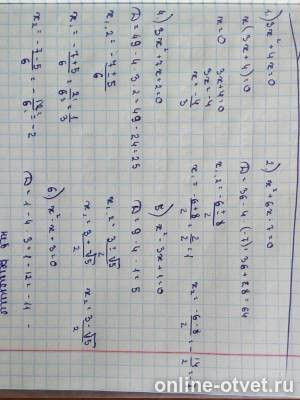 1) 3x²+4x=0
x(3x+4)=0
x=0 3x+4=0
3x=-4
x=-4/3
2) x²+6x-7=0
D=36-4·(-7)=36+28=64
x₁,₂=(-6±8)/2
x₁=(-6+8)/2=2/2=1 x₂=(-6-8)/2=-14/2
4) 3x²+7x+2=0
D=49-4·3·2=49-24=25
x₁,₂=(-7±5)/6
x₁=(-7+5)/6=-2/6=-1/3
x₂=(-7-5)/6=-12/6=-2
5) x²-3x+1=0
D=9-4·1=5
x₁,₂=(3±√5)/2
x₁=(3+√5)/2 x₂=(3-√5)/2
6) x²-x+3=0
D=1-4·3=1-12=-11 -
нет решения
online-otvet.ru